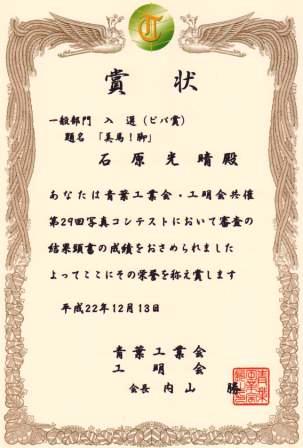 賞状
一般部門 入選（ビバ賞）
題名 「美馬！脚」
石原光晴殿
あなたは青葉工業会・工明会共催
第29回写真コンテストにおいて審査の
結果頭書の成績をおさめられました
よってここにその栄誉を称え賞します
平成22年12月13日
青葉工業会
工明会
会長 内山 勝